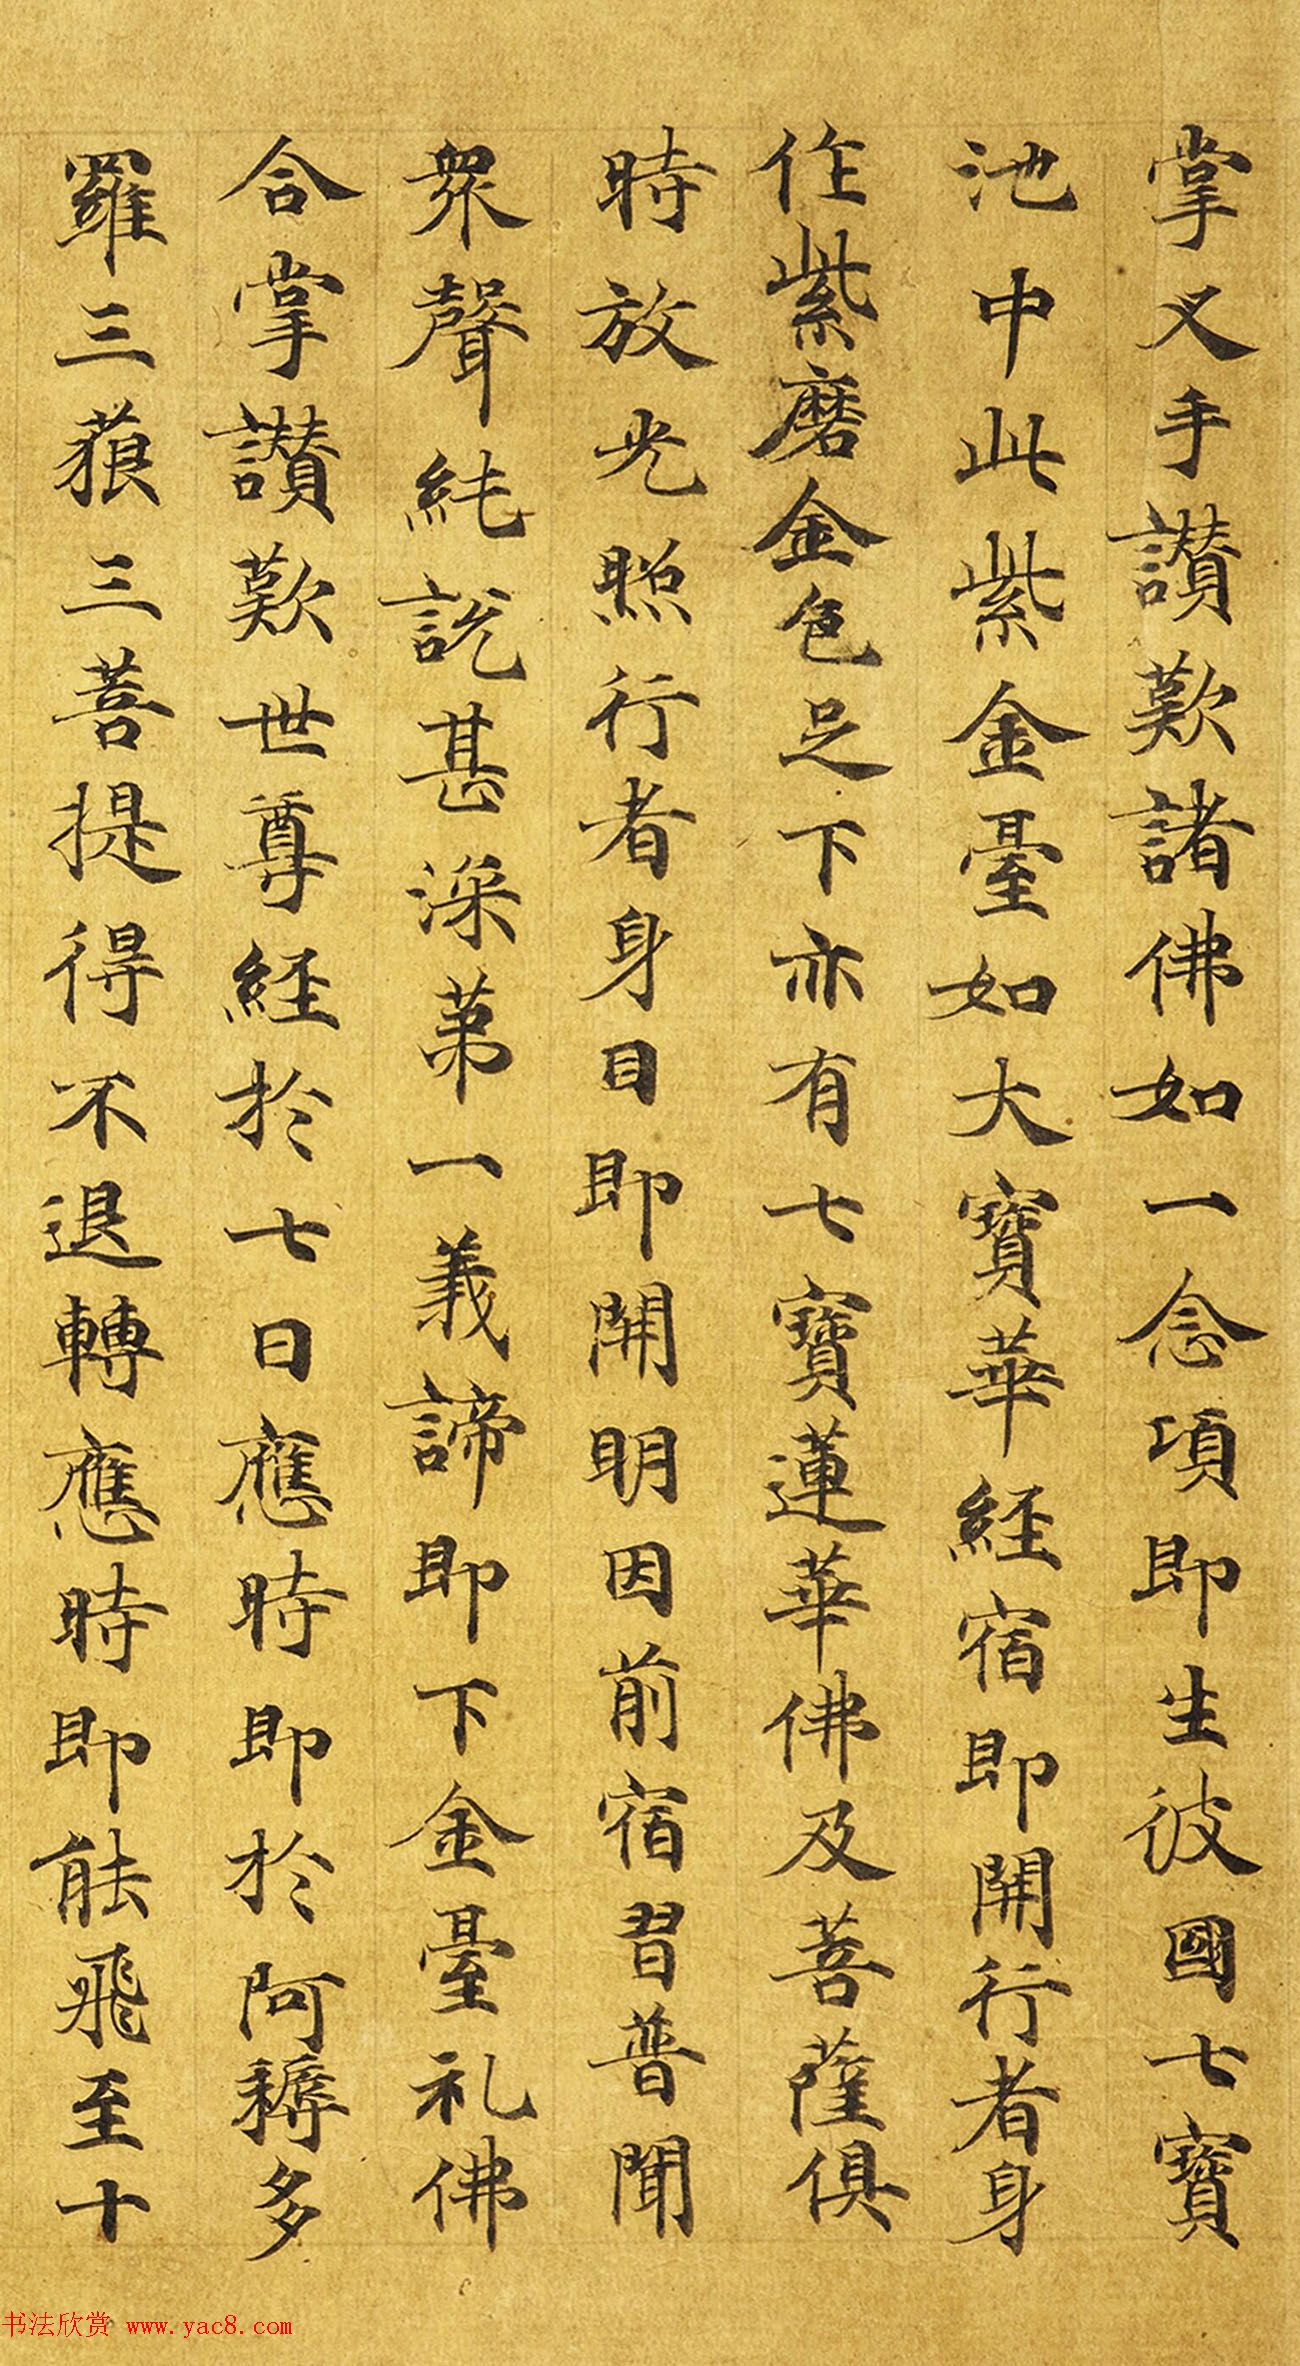 掌叉手讃歎諸佛如一念項即生彼國七寶
池中此紫金臺如大寶華經宿即開行者身
作紫磨金色足下亦有七寶蓮華佛及菩薩俱
時放光照行者身目即開明因前宿習普聞
眾聲純說甚深第一義諦即下金臺礼佛
合掌讃歎世尊經於七日應時即於阿耨多
羅三藐三菩提得不退轉應時即能飛至十
书法欣赏 www.yac8.com